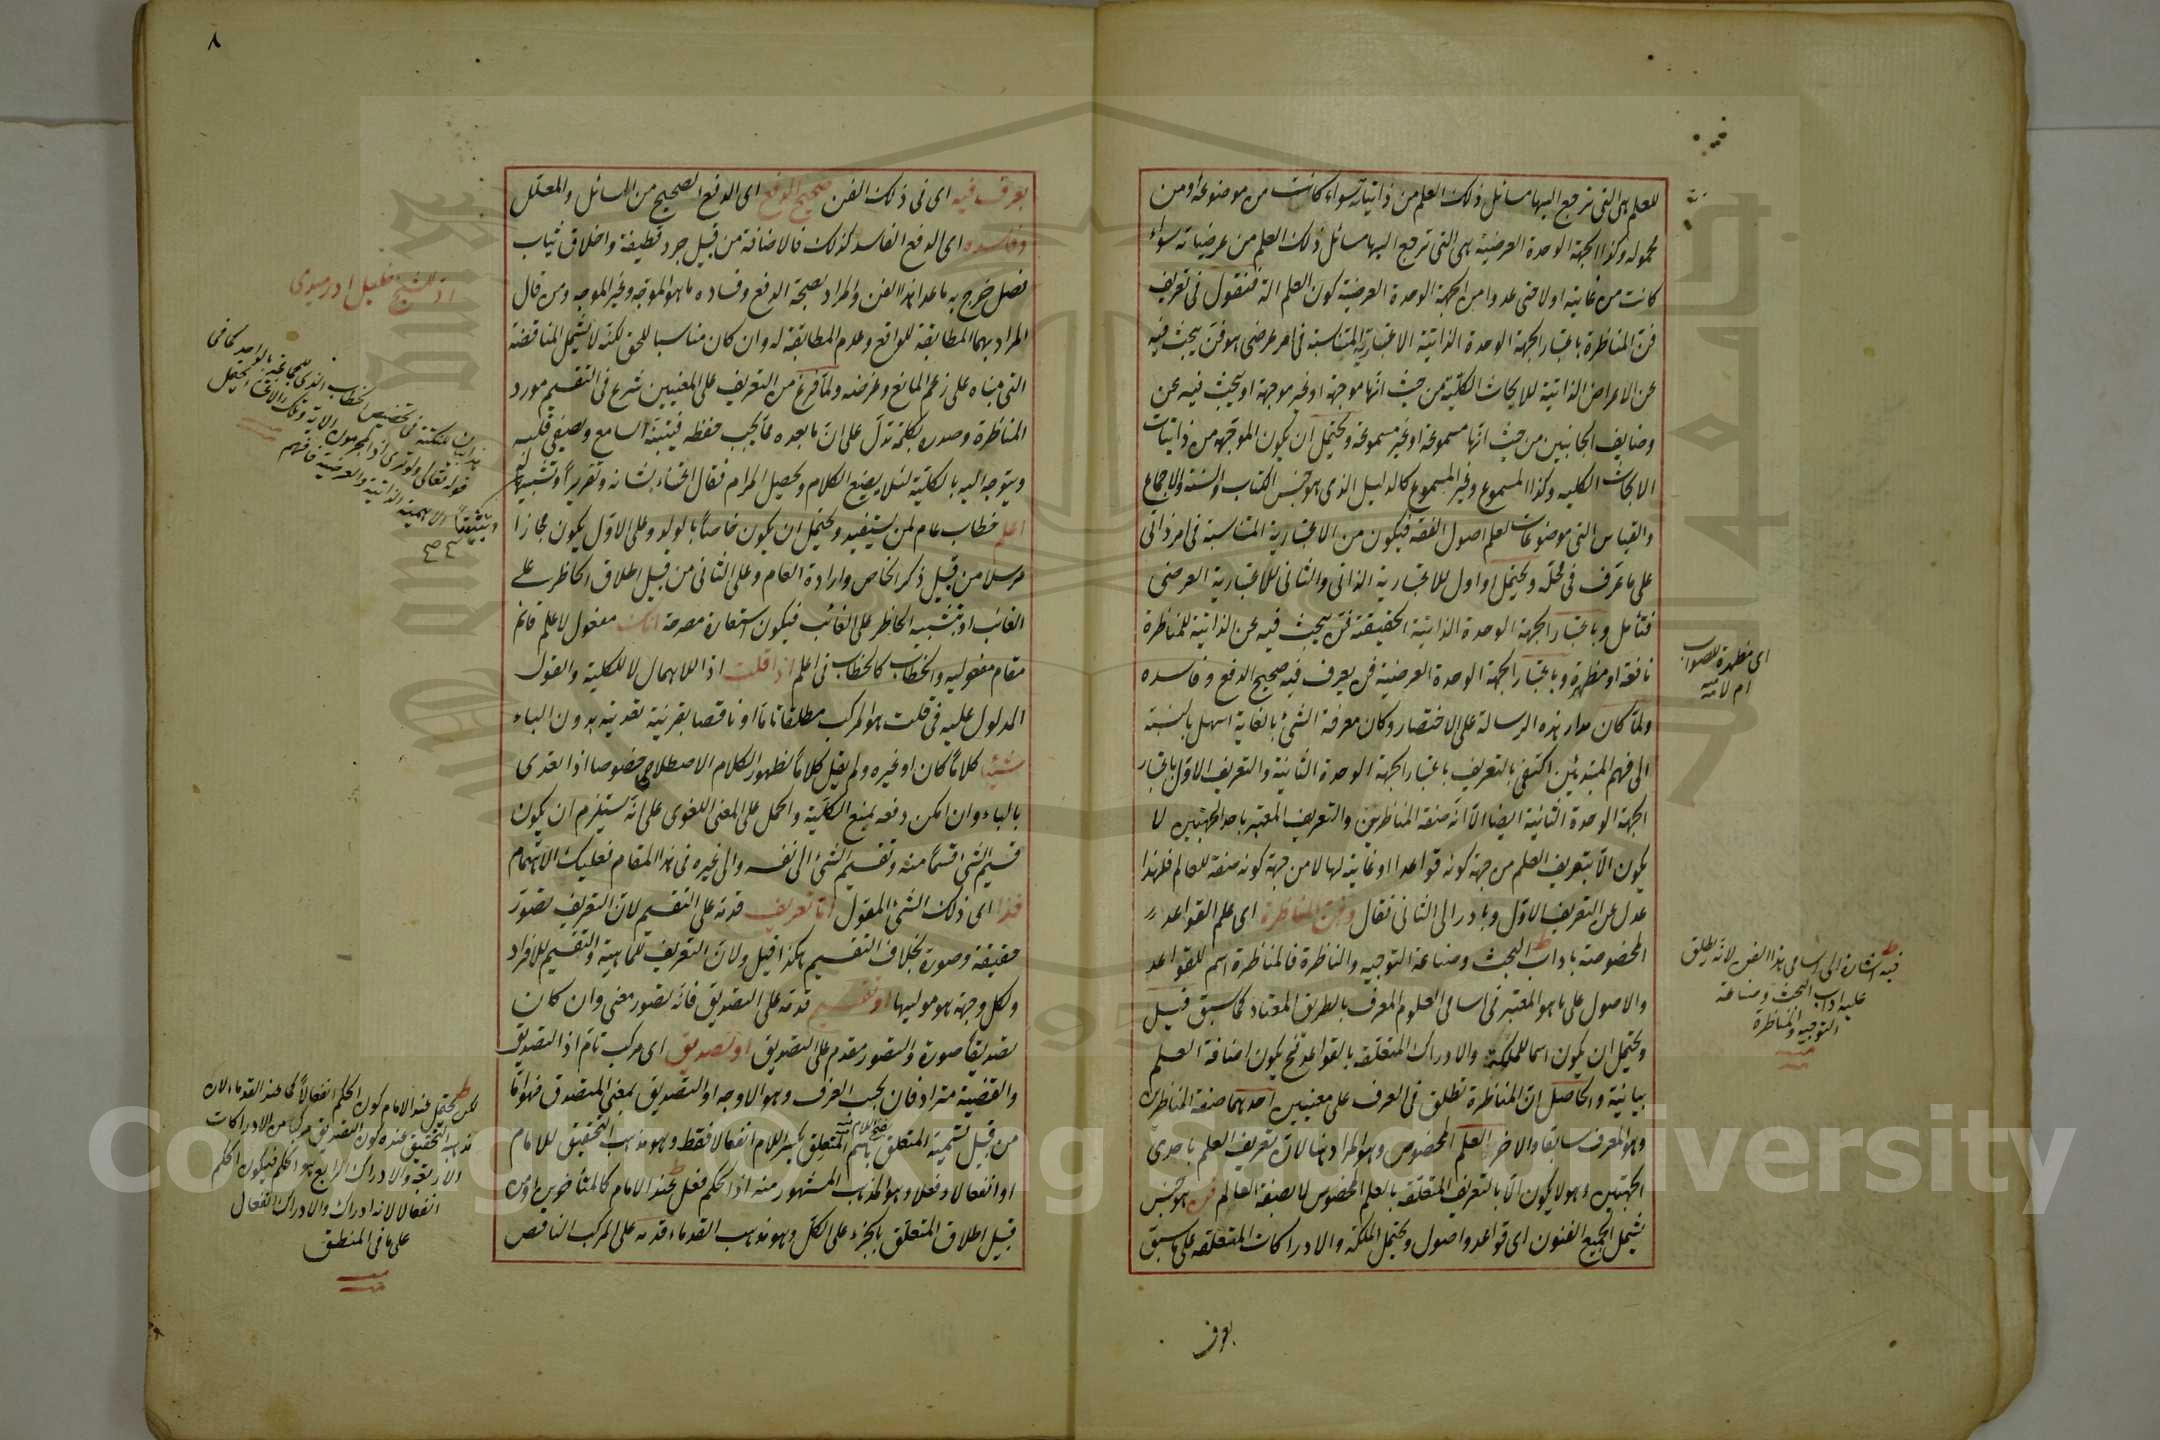 للعلم هى التى ترجع اليها مسائل ذلك العلم من ذاتياته سواء كانت من موضوعه او من
محموله وكذا الجهة الوحدة العرضية هى التى ترجع اليها مسائل ذلك العلم من عرضياته سواء
كانت من غايته اولا حتى عدوا من الجهة الوحدة العرضية كون العلم الة فنقول فى تعريف
فن المناظرة باعتبار الجهة الوحدة الذاتية الاعتبارية المتناسبة فى امر عرضى هو فن يبحث فيه
عن الاعراض الذاتية للابحاث الكلية من حيث انها موجهة او غير موجهة او يبحث فيه عن
وضايف الجانبين من حيث انها مسموعة او غير مسموعة ويحتمل ان يكون الموجهة من ذاتيات
الابحاث الكليه وكذا المسموع وغير المسموع كالدليل الذى هو جنس الكتاب والسنة والاجماع
والقياس التى موضوعات لعلم اصول الفقه فيكون من الاعتبارية المتناسبة فى امر ذاتى
على ما عرف فى محله ويحتمل اول للاعتبارية الذاتى والثانى للاعتبارية العرضى
فتأمل وباعتبار الجهة الوحدة الذاتية الحقيقة فن يبحث فيه عن الذاتية للمناظرة
نافعة او مظهرة وباعتبار الجهة الوحدة العرضية فن يعرف فيه صحيح الدفع وفاسده
ولما كان مدار هذه الرسالة على الاختصار وكان معرفة الشئ بالغاية اسهل بالنسبة
الى فهم المبتدئين اكتفى بالتعريف باعتبار الجهة الوحدة الثانية والتعريف الاول باعتبار
الجهة الوحدة الثانية ايضا الا انه صنعة المناظرين والتعريف المعتبر باحد الجهتين لا
يكون الا بتعريف العلم من جهة كونه قواعدا او غاية لها لا من جهة كونه صنعة للعالم فلهذا
عدل عن التعريف الاول وبادر الى الثانى فقال وفن المناظرة اى علم القواعد
المخصوصة باداب البحث وصناعة التوجيه والمناظرة فالمناظرة اسم للقواعد
والاصول على ما هو المعتبر فى اسامى العلوم المعرف بالطريق المعتاد كما سبق قيل
ويحتمل ان يكون اسما للملكة والادراك المتعلقة بالقواعد فح يكون اضافة العلم
بيانية والحاصل ان المناظرة تطلق فى العرف على معنيين احدهما صنعة المناظرين
وهو المعرف سابقا والاخر العلم المخصوص وهو المراد هنا لان تعريف العلم باحدى
الجهتين وهو لا يكون الا بالتعريف المتعلقة بالعلم المخصوص لا بصنعة العالم فن هو جنس
يشمل الجميع الفنون اى قواعد واصول ويحتمل الملكة والادراكات المتعلقة على ما سبق
يعرف
اى مظهرة للصواب
ام لا منه
فيه اشارة الى اسامى هذا الفن لانه يطلق
عليه اداب البحث وصناعة
التوجيه والمناظرة
منه
٨
يعرف فيه اى فى ذلك الفن صحيح الدفع اى الدفع الصحيح من السائل والمعلل
وفاسده اى الدفع الفاسد كذلك فالاضافة من قبيل جرد قطيفة واخلاق ثياب
فصل خرج به ما عدا هذا الفن والمراد بصحة الدفع وفساده ما هو الموجه وغير الموجه ومن قال
المراد بهما المطابقة للواقع وعدم المطابقة له وان كان مناسبا للحق لكنه لا يشمل المناقضة
التى مبناه على زعم المانع وغرضه ولما فرغ من التعريف على المعنيين شرع فى التقسيم مورد
المناظرة وصدره بكلمة تدل على ان ما بعده مما يجب حفظه فيتنبه السامع ويصغى قلبه
ويتوجه اليه بالكلية لئلا يضيع الكلام ويحصل المرام فقال اعتناء بشانه وتقريرا وتشبيها
اعلم خطاب عام لمن يستفيد ويحتمل ان يكون خاصا بالولد وعلى الاول يكون مجازا
مرسلا من قبيل ذكر الخاص وارادة العام وعلى الثانى من قبيل اطلاق الحاظر على
الغائب او تشبيه الحاظر على الغائب فيكون استعارة مصرحة انك مفعول لاعلم قائم
مقام مفعوليه والخطاب كالخطاب فى اعلم اذا قلت اذا للاهمال لا للكلية والقول
المدلول عليه فى قلت هو المركب مطلقا تاما او ناقصا بقرينة تعديته بدون الباء
شيئا كلاما كان او غيره ولم يقل كلاما لظهور الكلام الاصطلاحى خصوصا اذا تعدى
بالباء وان امكن دفعه بمنع الكلية والحمل على المعنى اللغوى على انه يستلزم ان يكون
قسيم الشئ قسما منه وتقسيم الشئ الى نفسه والى غيره فى هذا المقام فعليك الاهتمام
فذا اى ذلك الشئ المقول اما تعريف قدمه على التقسيم لان التعريف تصور
حقيقة وصورة بخلاف التقسيم هكذا قيل ولان التعريف للماهية والتقسيم للافراد
ولكل وجهة هو موليها او تقسيم قدمه على التصديق فانه تصور معنى وان كان
تصديقا صورة والتصور مقدم على التصديق او تصديق اى مركب تام اذ التصديق
والقضية مترادفان بحسب العرف وهو الاوجه او التصديق بمعنى المتصدق فهو اما
من قبيل تسمية المتعلق باسم المتعلق بكسر اللام انفعالا فقط وهو مذهب التحقيق للامام
او انفعالا وفعلا وهو المذهب المشهور منه اذ الحكم فعل عند الامام كالمتأخرين او من
قبيل اطلاق المتعلق بالجزء على الكل وهو مذهب القدماء قدمه على المركب الناقص
بفتح اللام
خليل ادرموى
لكن يحتمل عند الامام كون الحكم انفعالا كما عند القدماء لان
مذهب التحقيق عنده كون التصديق مركب من الادراكات
الاربعة والادراك الرابع هو الحكم فيكون الحكم
انفعالا لانه ادراك والادراك انفعال
على ما فى المنطق
منه
Copyright © King Saud University